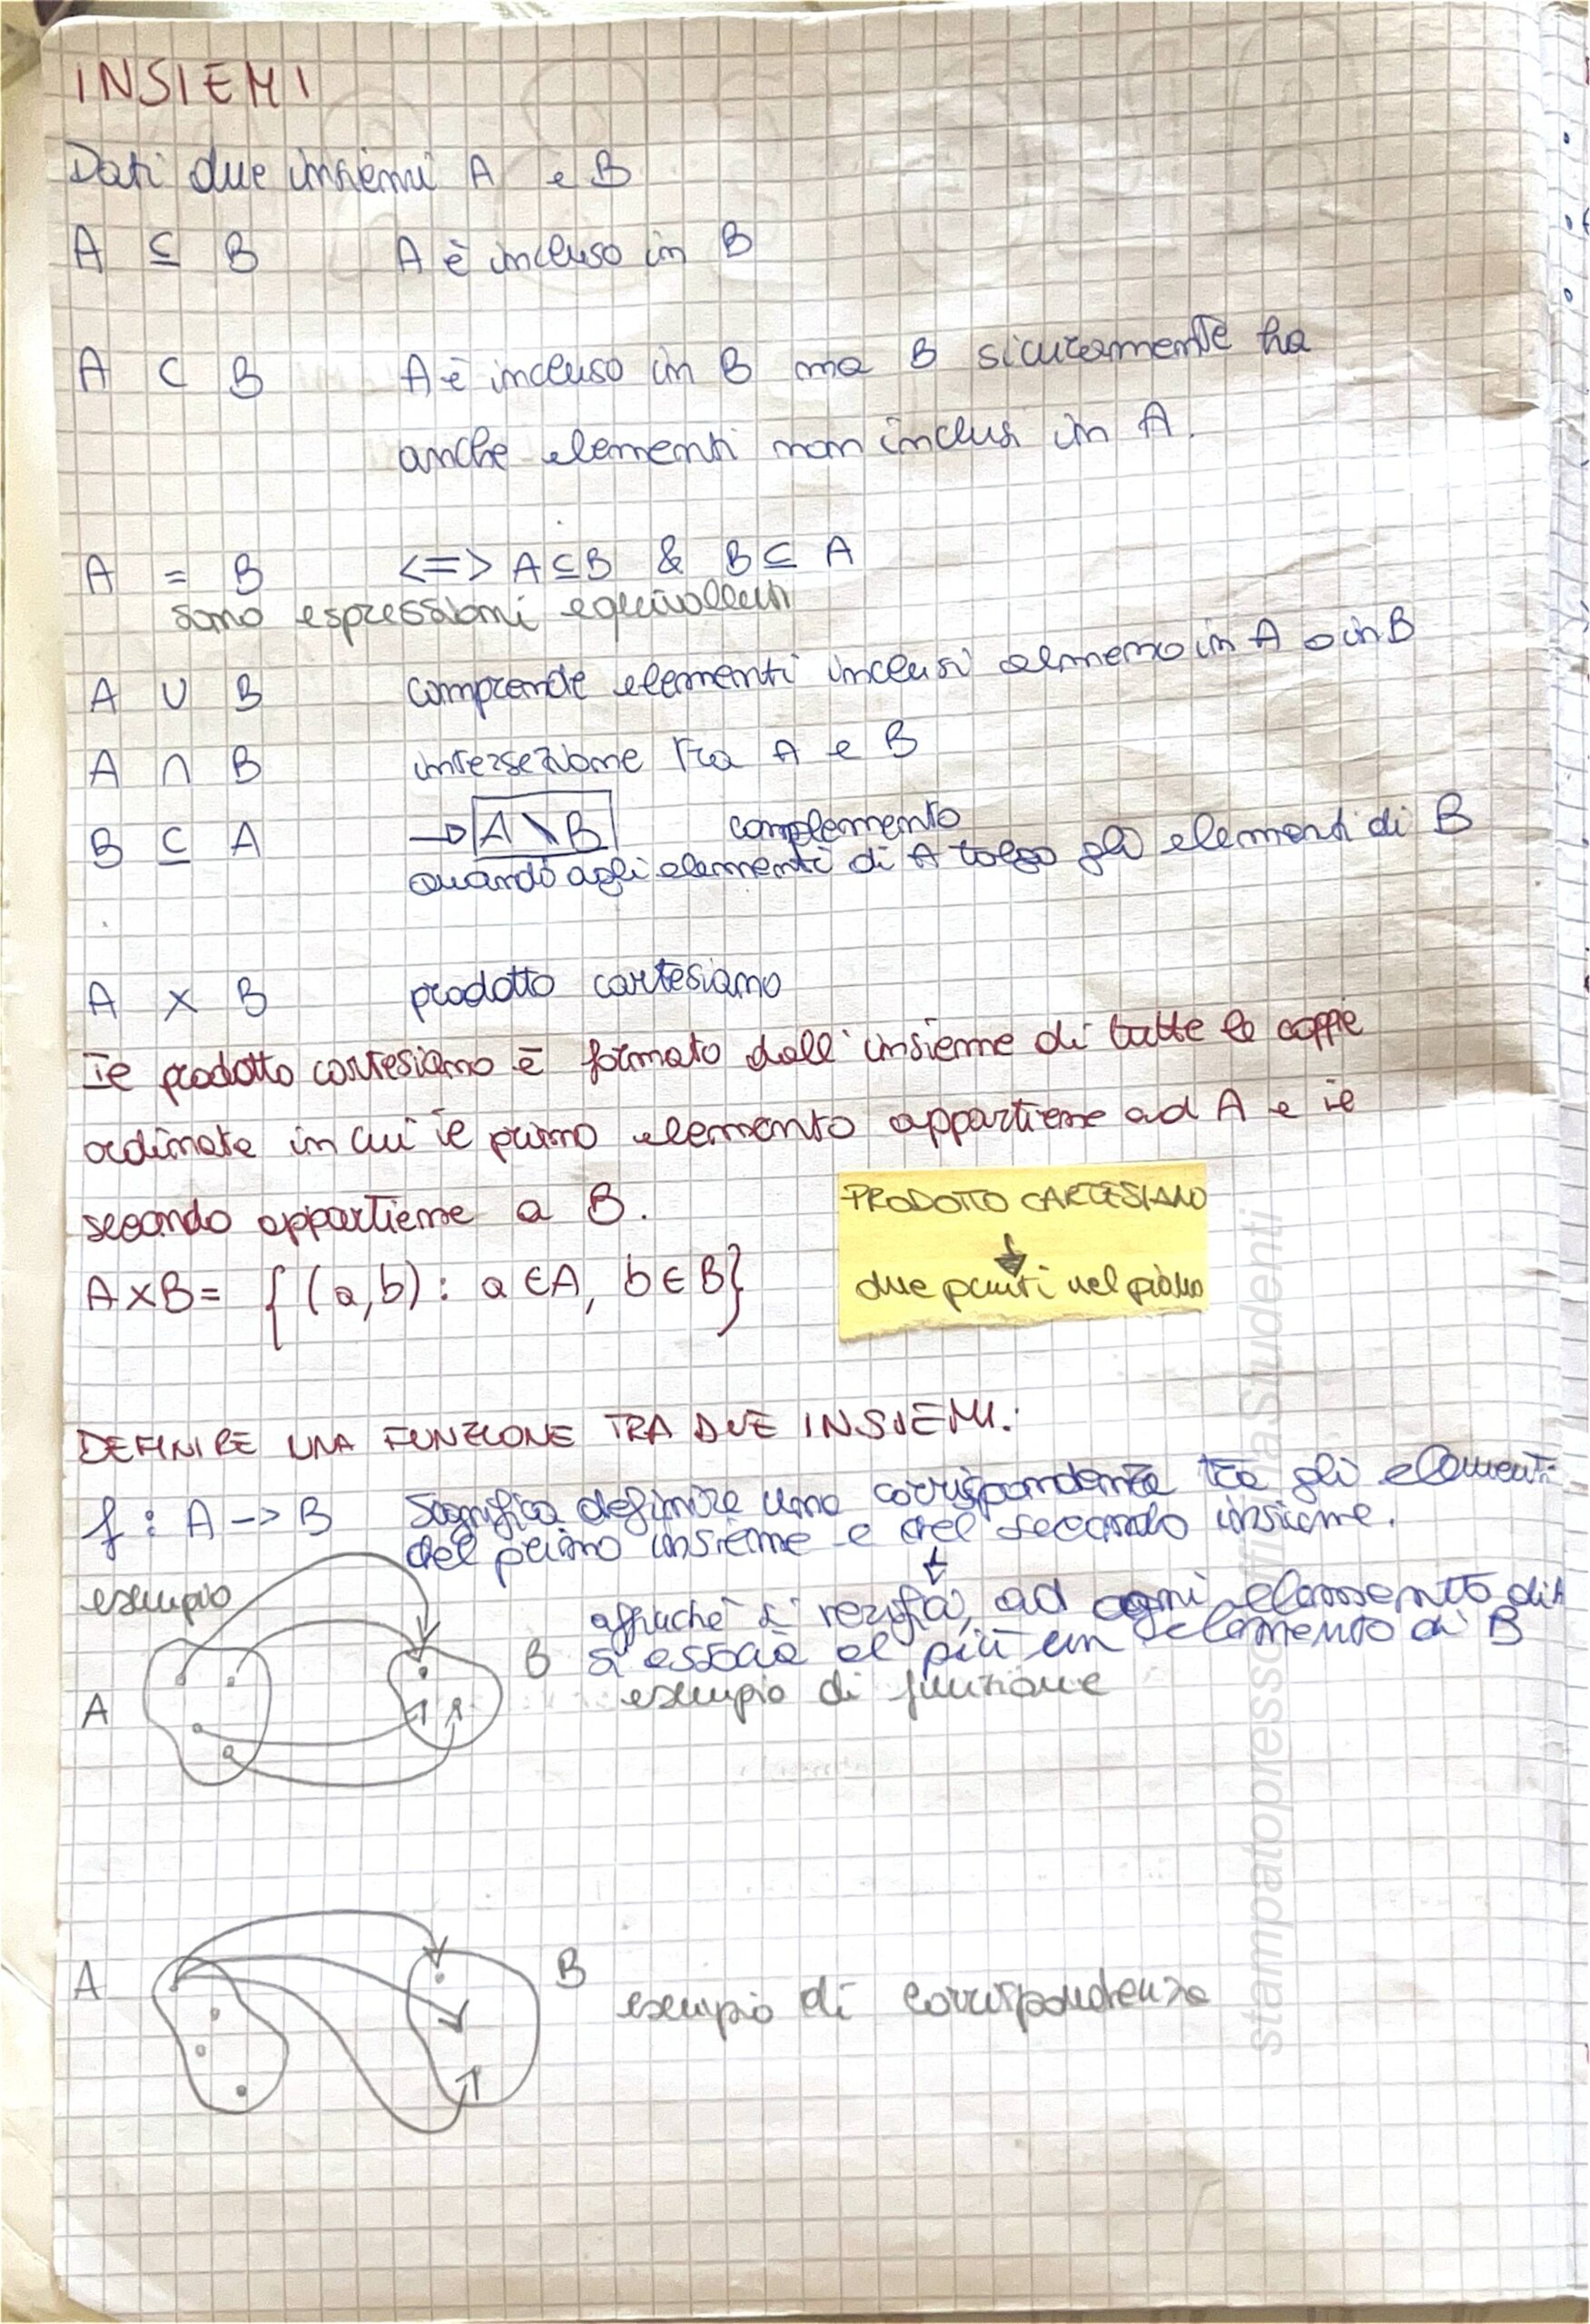 INSIEMI
Dati due insiemi A e B
A ⊆ B A è incluso in B
A ⊂ B A è incluso in B ma B sicuramente ha
anche elementi non inclusi in A.
A = B <=> A⊆B & B⊆A
sono espressioni equivalenti
A ∪ B comprende elementi inclusi almeno in A o in B
A ∩ B intersezione tra A e B
B ⊆ A → A \ B complemento
quando agli elementi di A tolgo gli elementi di B
A × B prodotto cartesiano
Il prodotto cartesiano è formato dall'insieme di tutte le coppie
ordinate in cui il primo elemento appartiene ad A e il
secondo appartiene a B.
PRODOTTO CARTESIANO
↓
due punti nel piano
A×B = {(a,b) : a∈A, b∈B}
DEFINIRE UNA FUNZIONE TRA DUE INSIEMI:
f : A -> B Significa definire una corrispondenza tra gli elementi
del primo insieme e del secondo insieme.
↓
esempio
affinché si verifica, ad ogni elemento di A
si associa al più un elemento di B
A B esempio di funzione
A B esempio di corrispondenza